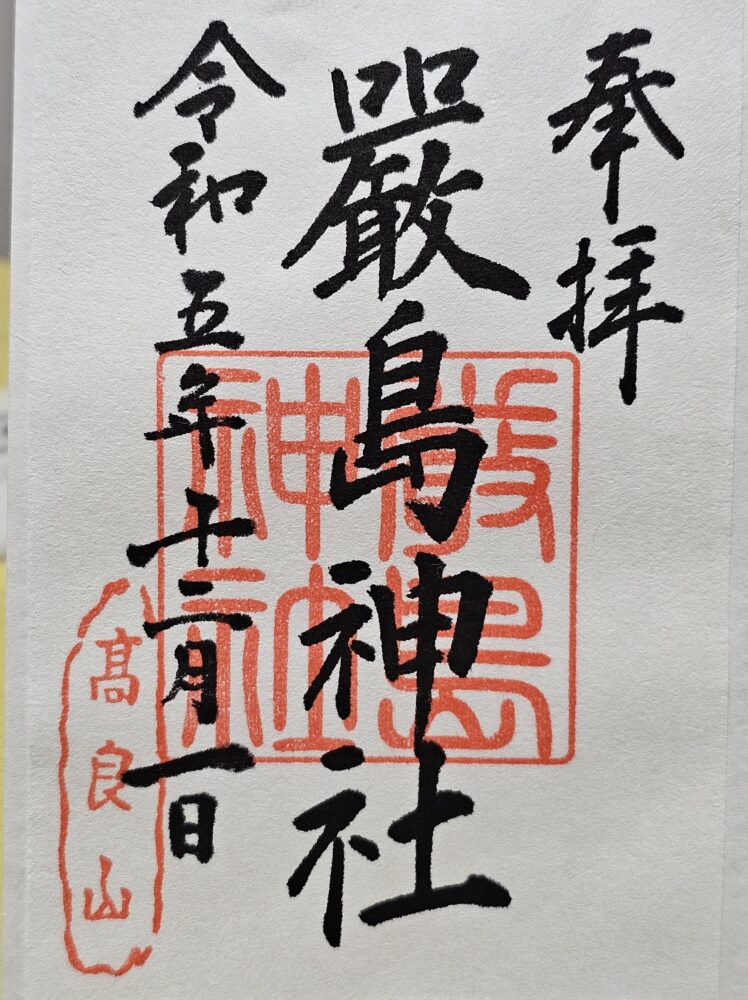 奉拝
嚴島神社
令和五年十二月一日
厳島神社
髙良山